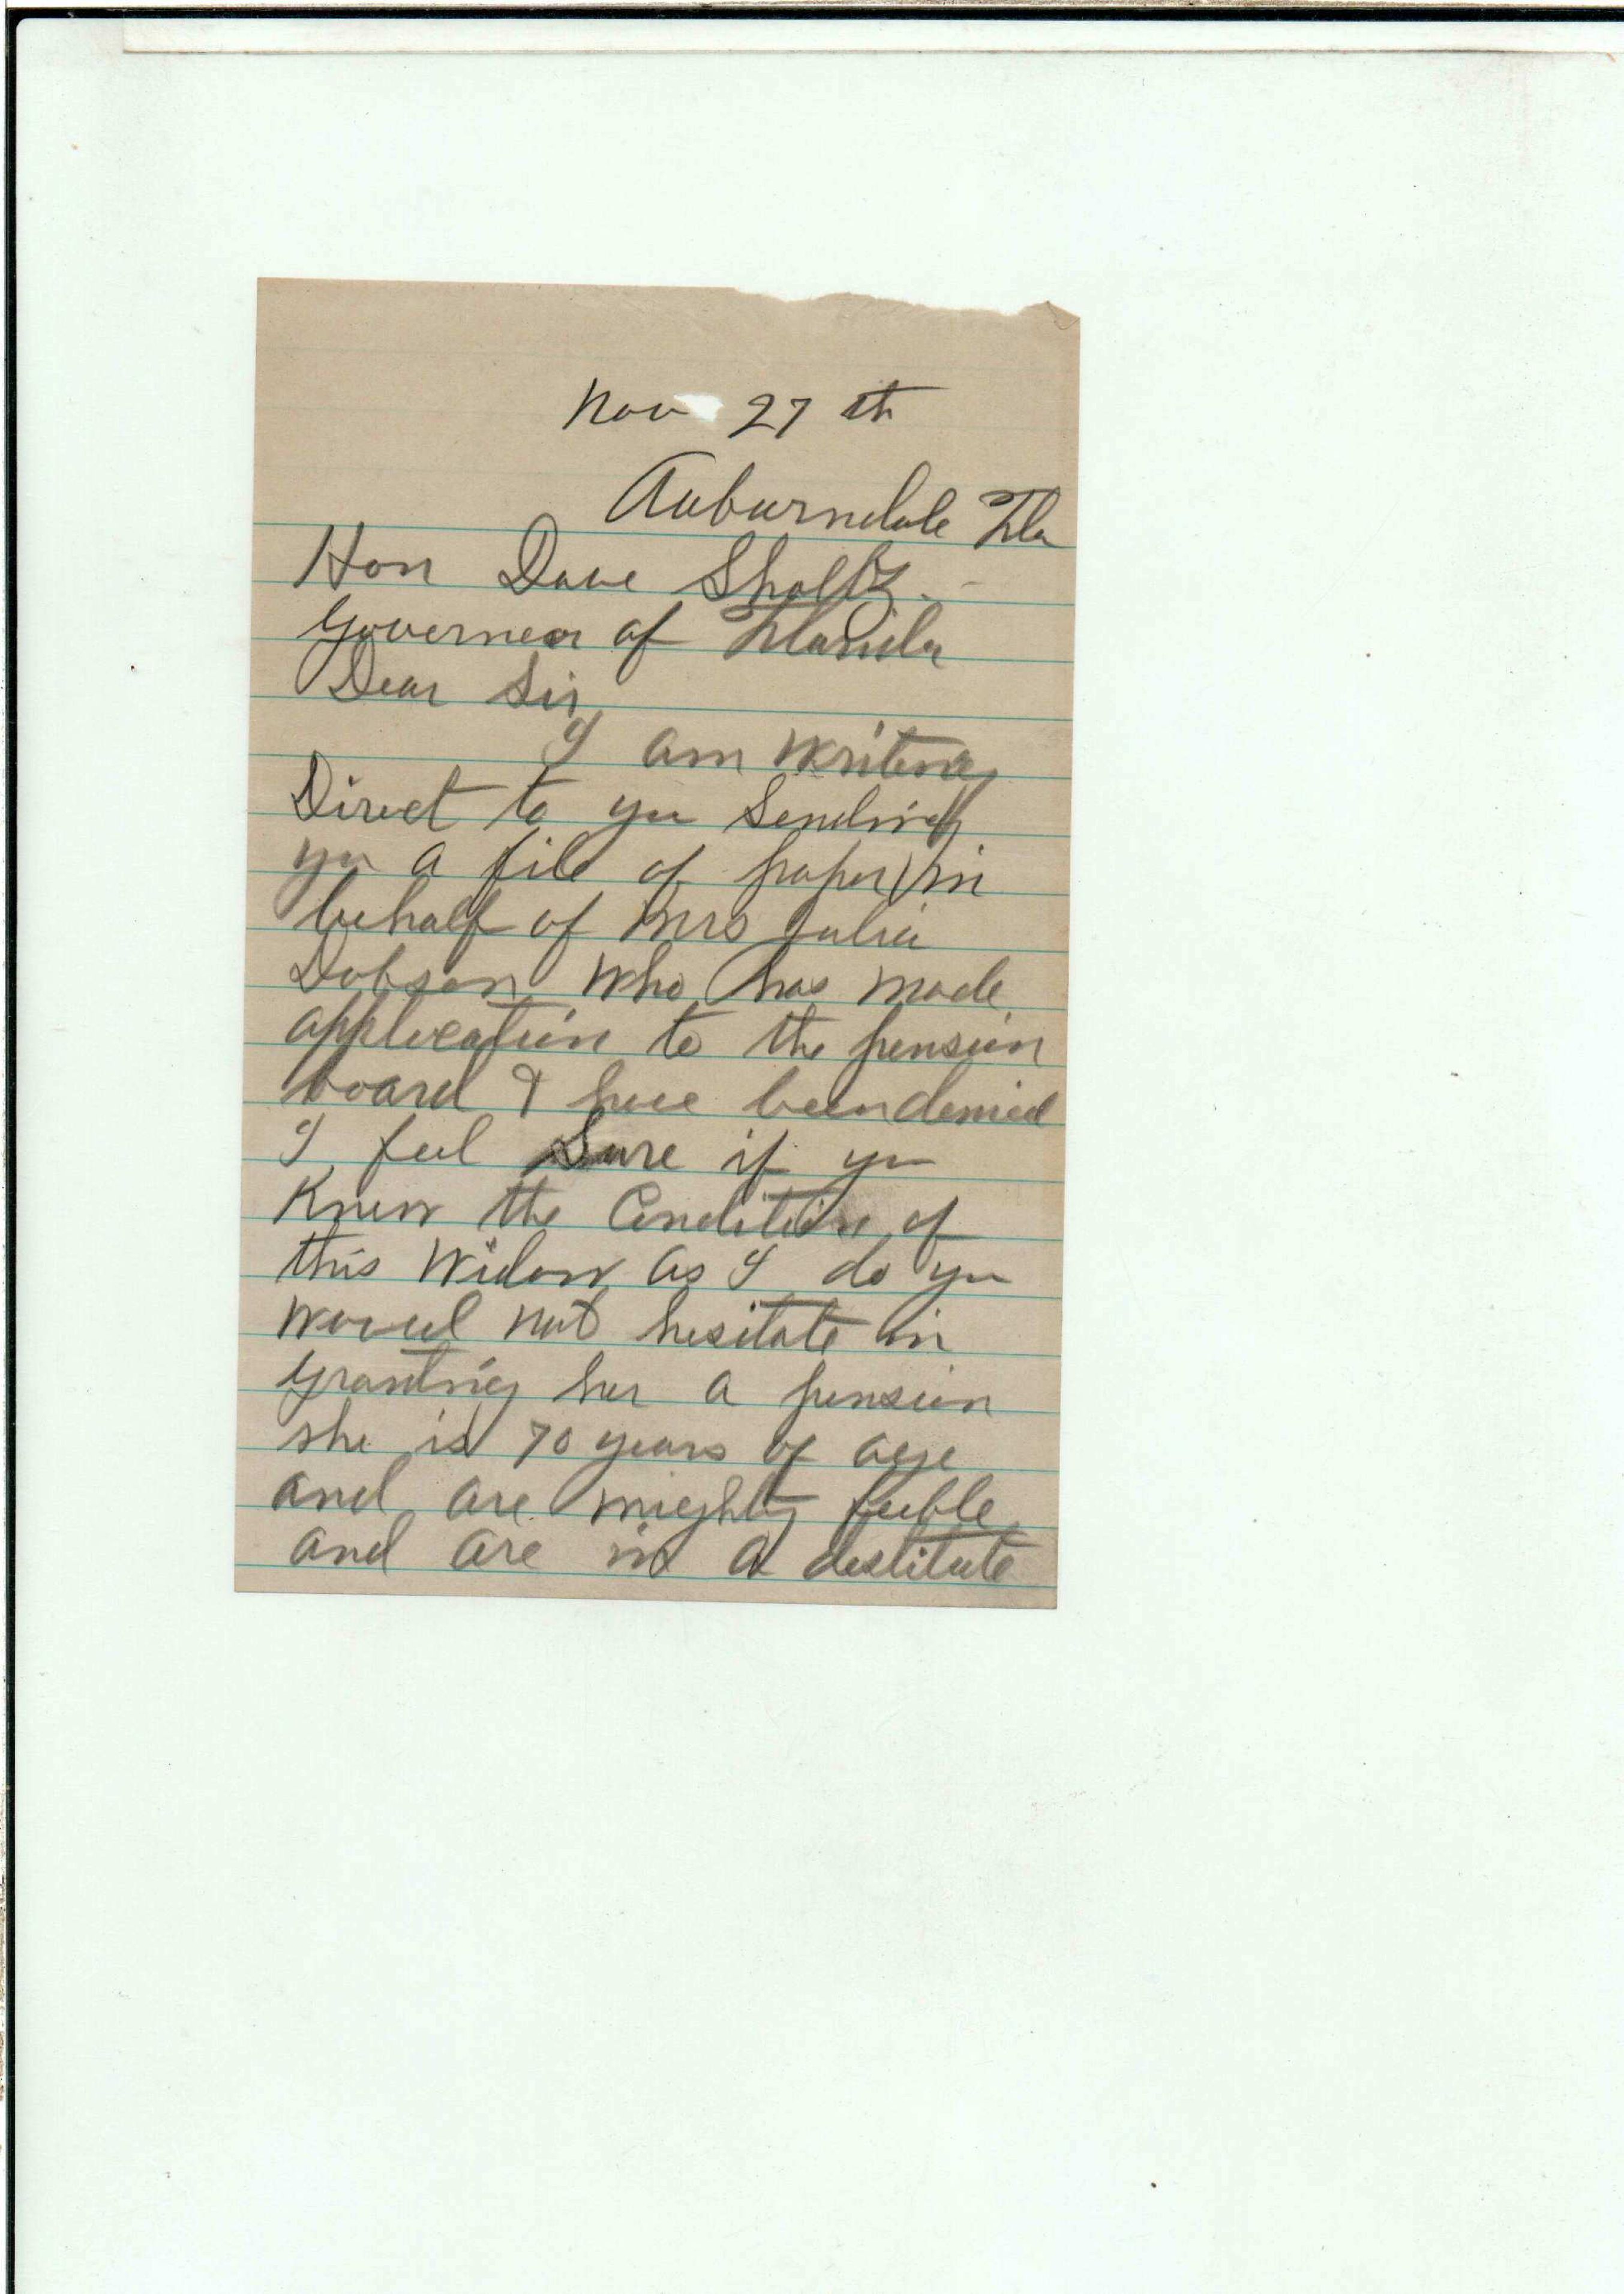 Nov 27 th
Auburndale Fla
Hon Dave Sholtz -
Governor of Florida
Dear Sir
I am writeng
Direct to you Sending
you a file of papers in
behalf of Mrs Julia
Dobson who has made
application to the pension
board & have been denied
I feel Sure if you
Knew the Condition of
this Widow as I do you
would not hesitate in
granting her a pension
she is 70 years of age
and are mighty feeble
and are in a destitute